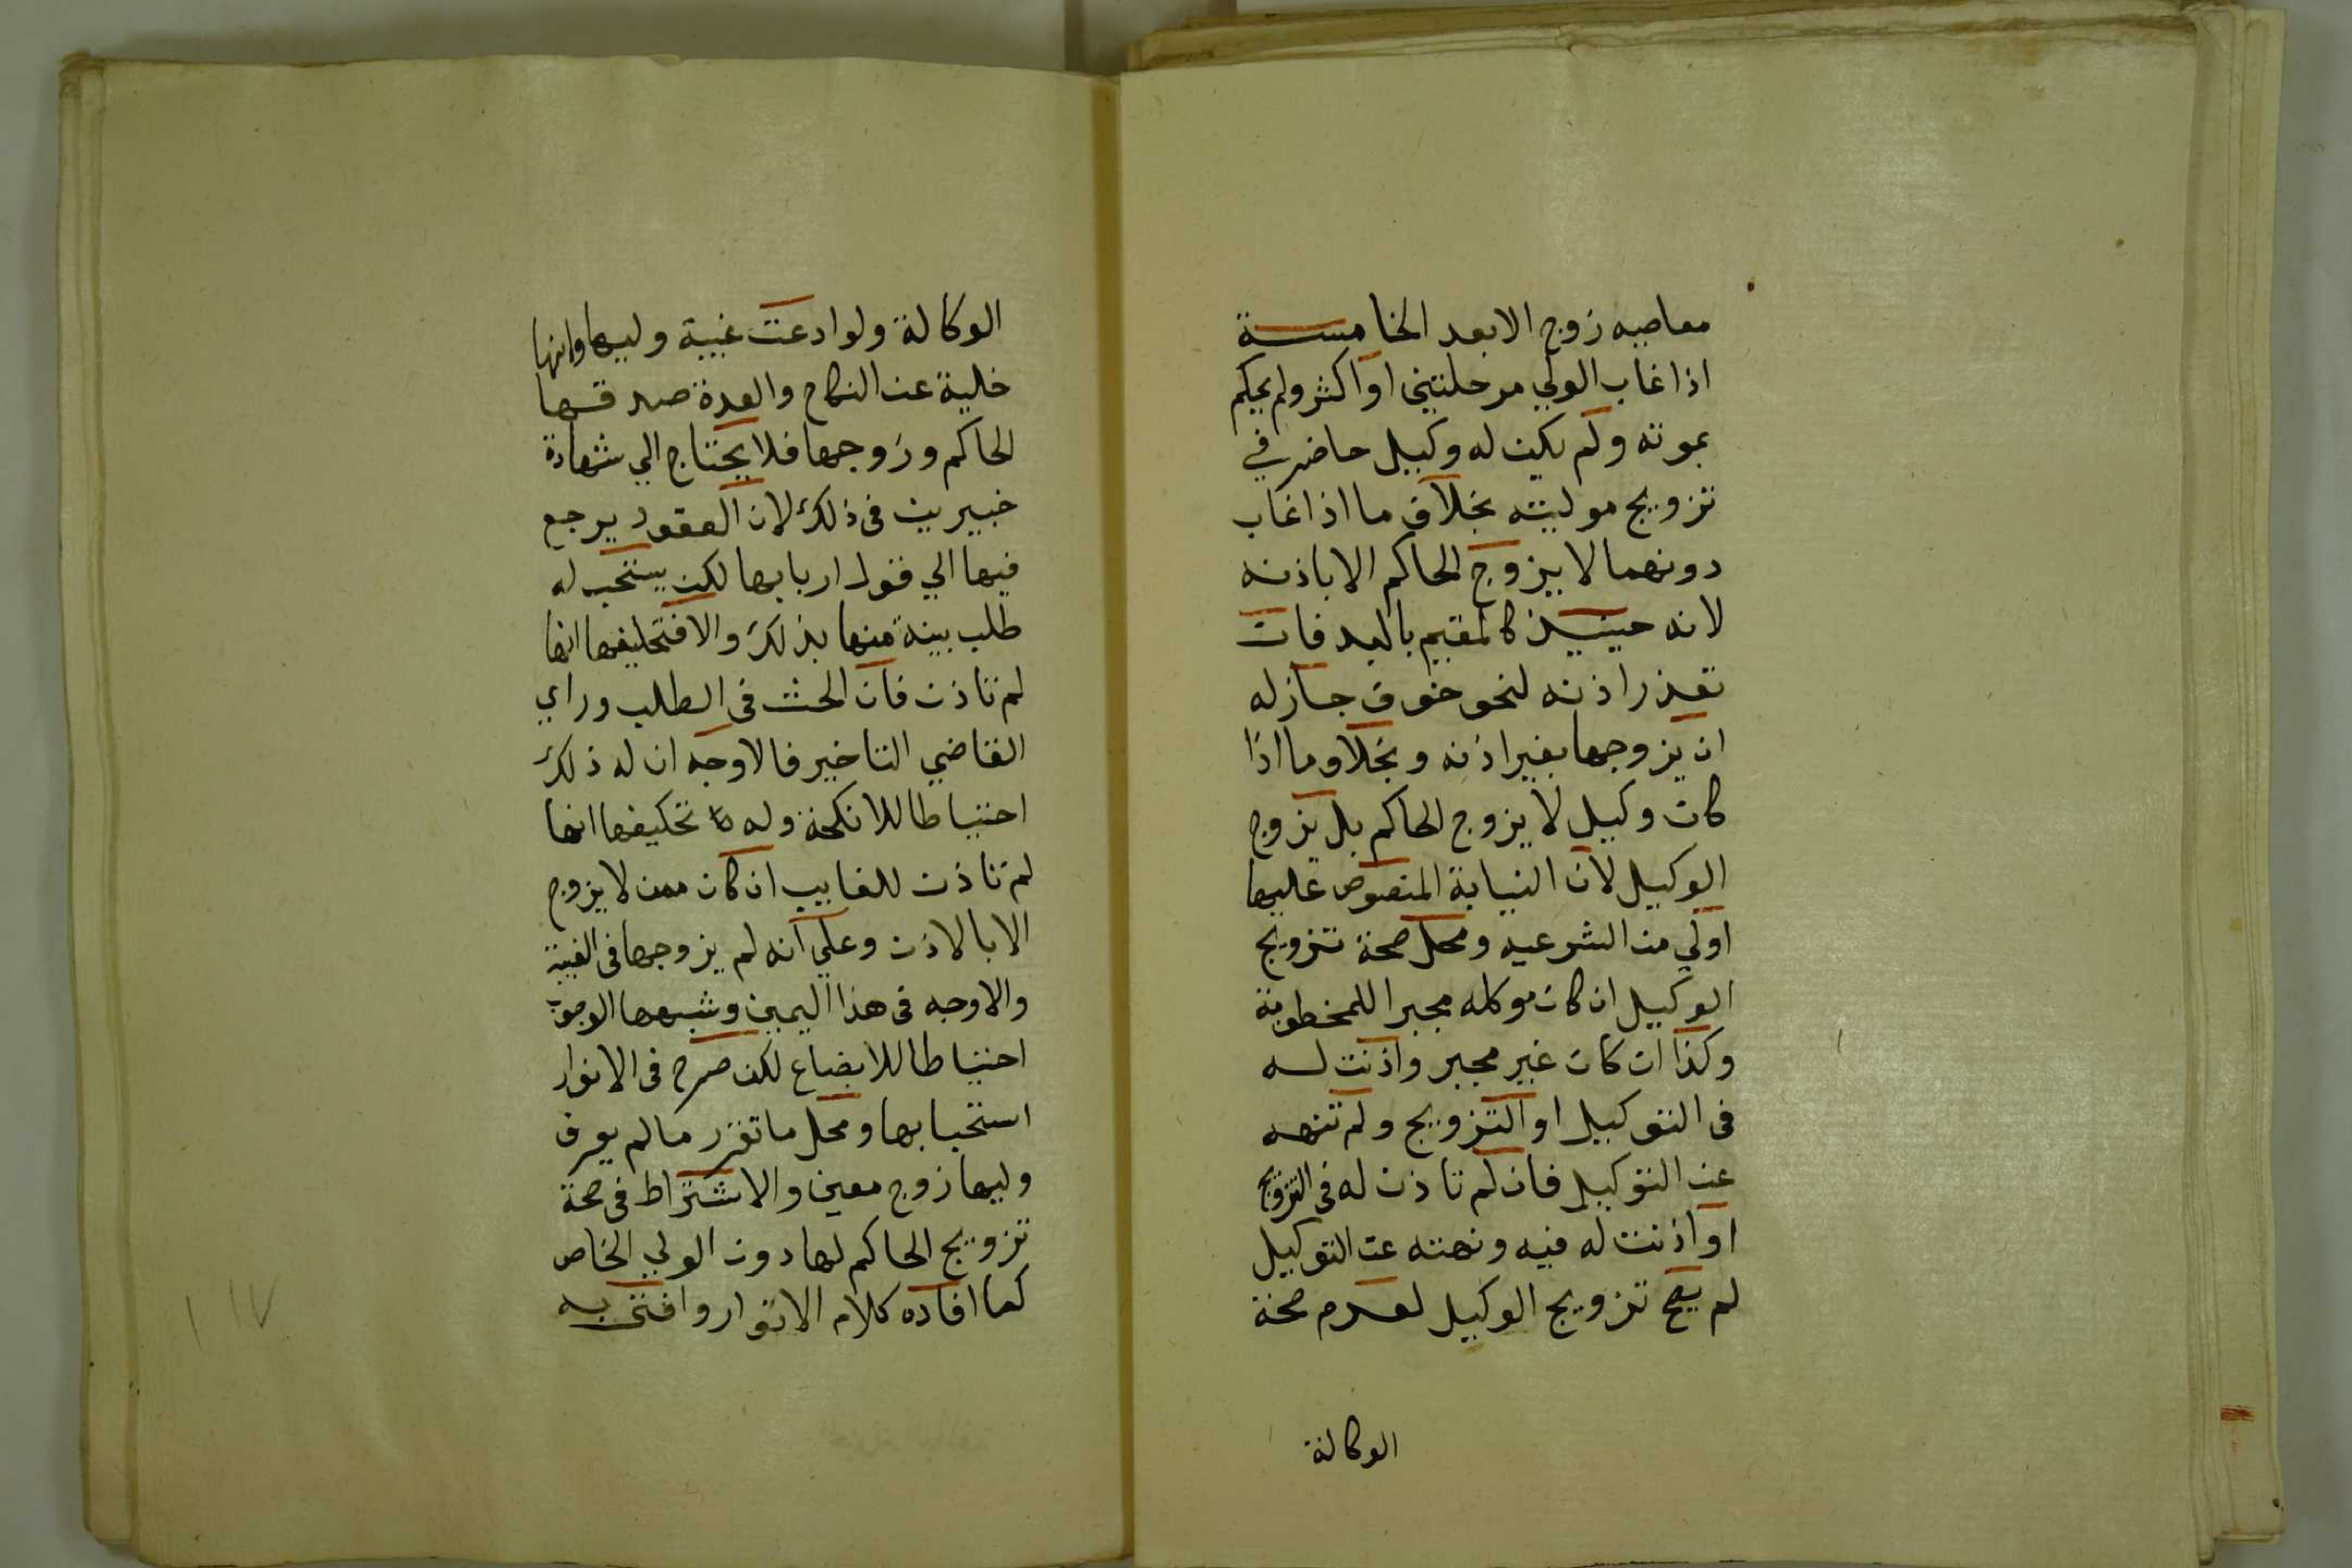 معاصيه زوج الابعد الخامسة
اذا غاب الولي مرحلتين او اكثر ولم يحكم
بموته ولم يكن له وكيل حاضر في
تزويج موليته بخلاف ما اذا غاب
دونهما لا يزوج الحاكم الا باذنه
لانه حينيذ كالمقيم بالبلد فان
تعذر اذنه لنحو خوف جاز له
ان يزوجها بغير اذنه وبخلاف ما اذا
كان وكيل لا يزوج الحاكم بل يزوج
الوكيل لان النيابة المنصوص عليها
اولي من الشرعيه ومحل صحة تزويج
الوكيل ان كان موكله مجبرا للمخطوبة
وكذا ان كان غير مجبر واذنت له
في التوكيل او التزويج ولم تنهه
عن التوكيل فان لم تاذن له في التزويج
او اذنت له فيه ونهته عن التوكيل
لم يصح تزويج الوكيل لعدم صحة
الوكالة
الوكالة ولو ادعت غيبة وليها وانها
خلية عن النكاح والعدة صدقها
الحاكم وزوجها فلا يحتاج الي شهادة
خبيرين في ذلك لان العقود يرجع
فيها الي قول اربابها لكن يستحب له
طلب بينة منها بذلك والا فتحليفها انها
لم تاذن فان الحث في الطلب وراي
القاضي التاخير فالاوجه ان له ذلك
احتياطا للانكحة وله تحليفها انها
لم تاذن للغايب ان كان ممن لا يزوج
الا بالاذن وعلي انه لم يزوجها في الغيبة
والاوجه في هذا اليمين وشبهها الوجوب
احتياطا للابضاع لكن صرح في الانوار
استحبابها ومحل ما تقرر ما لم يعرف
وليها زوج معين والا اشتراط في صحة
تزويج الحاكم لها دون الولي الخاص
كما افاده كلام الانوار وافتي به
١١٧